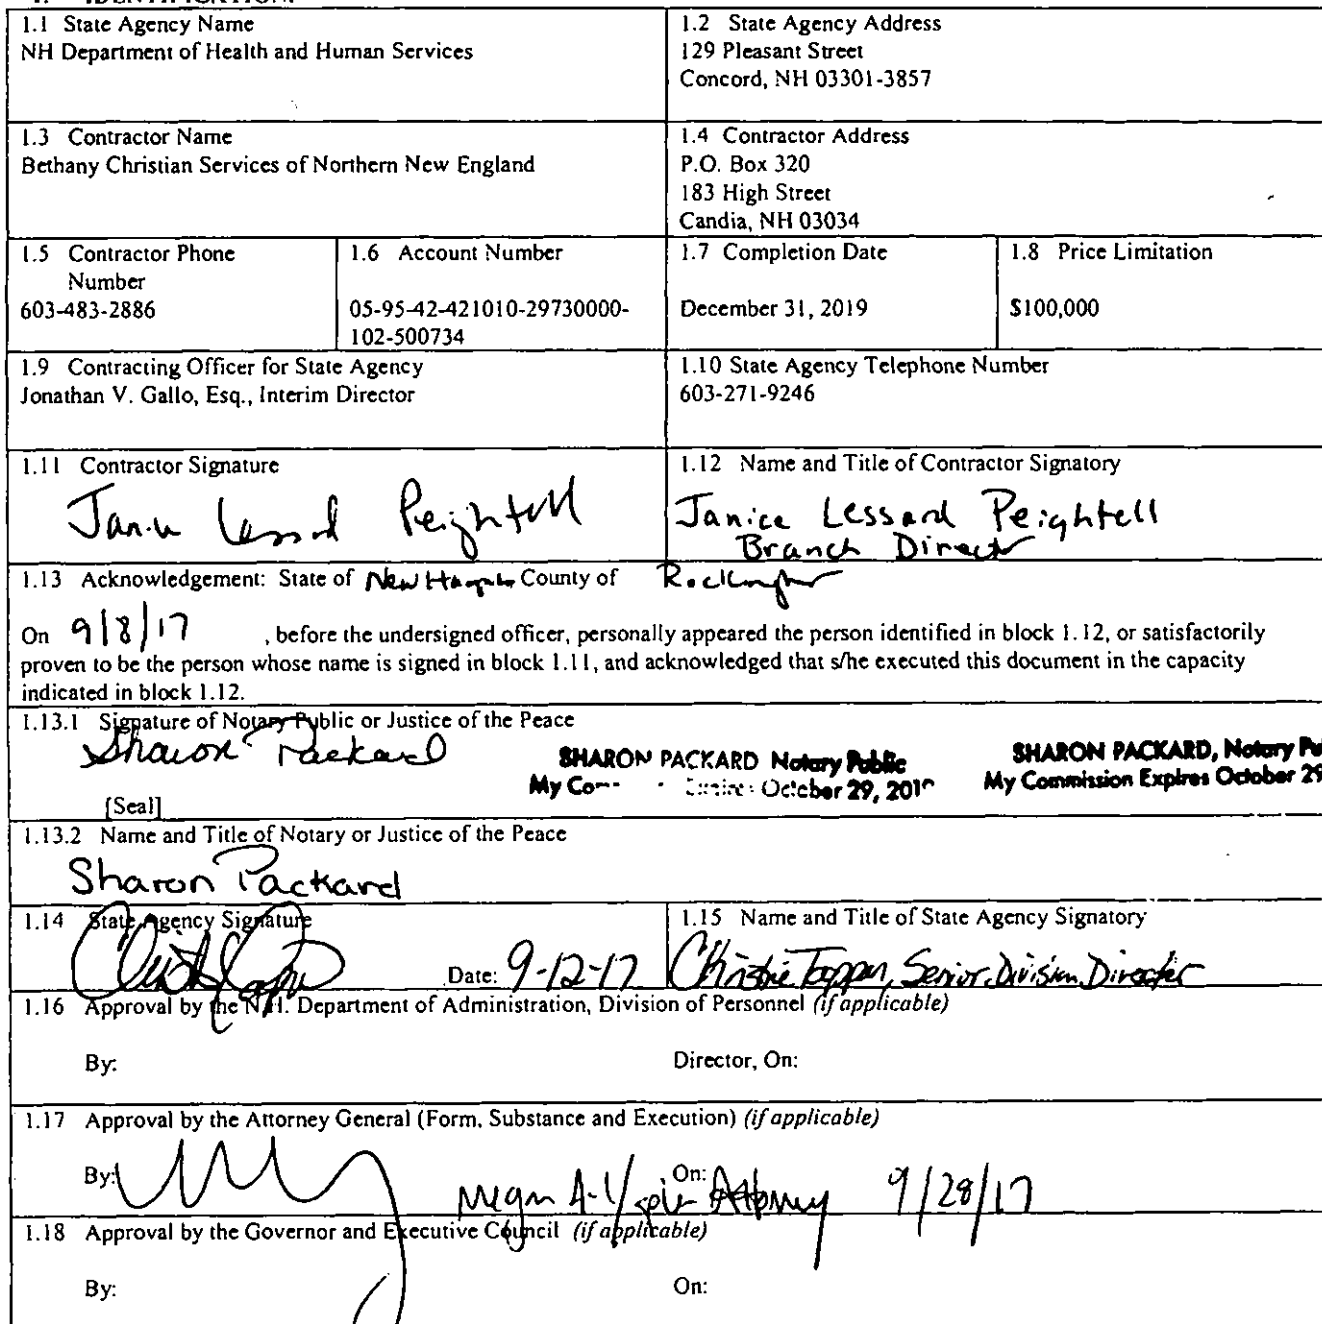 1.1 State Agency Name
NH Department of Health and Human Services
1.2 State Agency Address
129 Pleasant Street
Concord, NH 03301-3857
1.3 Contractor Name
Bethany Christian Services of Northern New England
1.4 Contractor Address
P.O. Box 320
183 High Street
Candia, NH 03034
1.5 Contractor Phone
Number
603-483-2886
1.6 Account Number
05-95-42-421010-29730000-
102-500734
1.7 Completion Date
December 31, 2019
1.8 Price Limitation
$100,000
1.9 Contracting Officer for State Agency
Jonathan V. Gallo, Esq., Interim Director
1.10 State Agency Telephone Number
603-271-9246
1.11 Contractor Signature
Janice Lessard Peightell
1.12 Name and Title of Contractor Signatory
Janice Lessard Peightell
Branch Director
1.13 Acknowledgement: State of New Hampshire County of Rockingham
On 9/8/17 , before the undersigned officer, personally appeared the person identified in block 1.12, or satisfactorily
proven to be the person whose name is signed in block 1.11, and acknowledged that s/he executed this document in the capacity
indicated in block 1.12.
1.13.1 Signature of Notary Public or Justice of the Peace
Sharon Packard
SHARON PACKARD Notary Public
My October 29,
SHARON PACKARD, Notary
My Commission Expires October 29
[Seal]
1.13.2 Name and Title of Notary or Justice of the Peace
Sharon Packard
1.14 State Agency Signature
Date: 9-12-17
1.15 Name and Title of State Agency Signatory
Christie Tappan, Senior Division Director
1.16 Approval by the N.H. Department of Administration, Division of Personnel (if applicable)
By: Director, On:
1.17 Approval by the Attorney General (Form, Substance and Execution) (if applicable)
By: On: Attorney 9/28/17
1.18 Approval by the Governor and Executive Council (if applicable)
By: On: